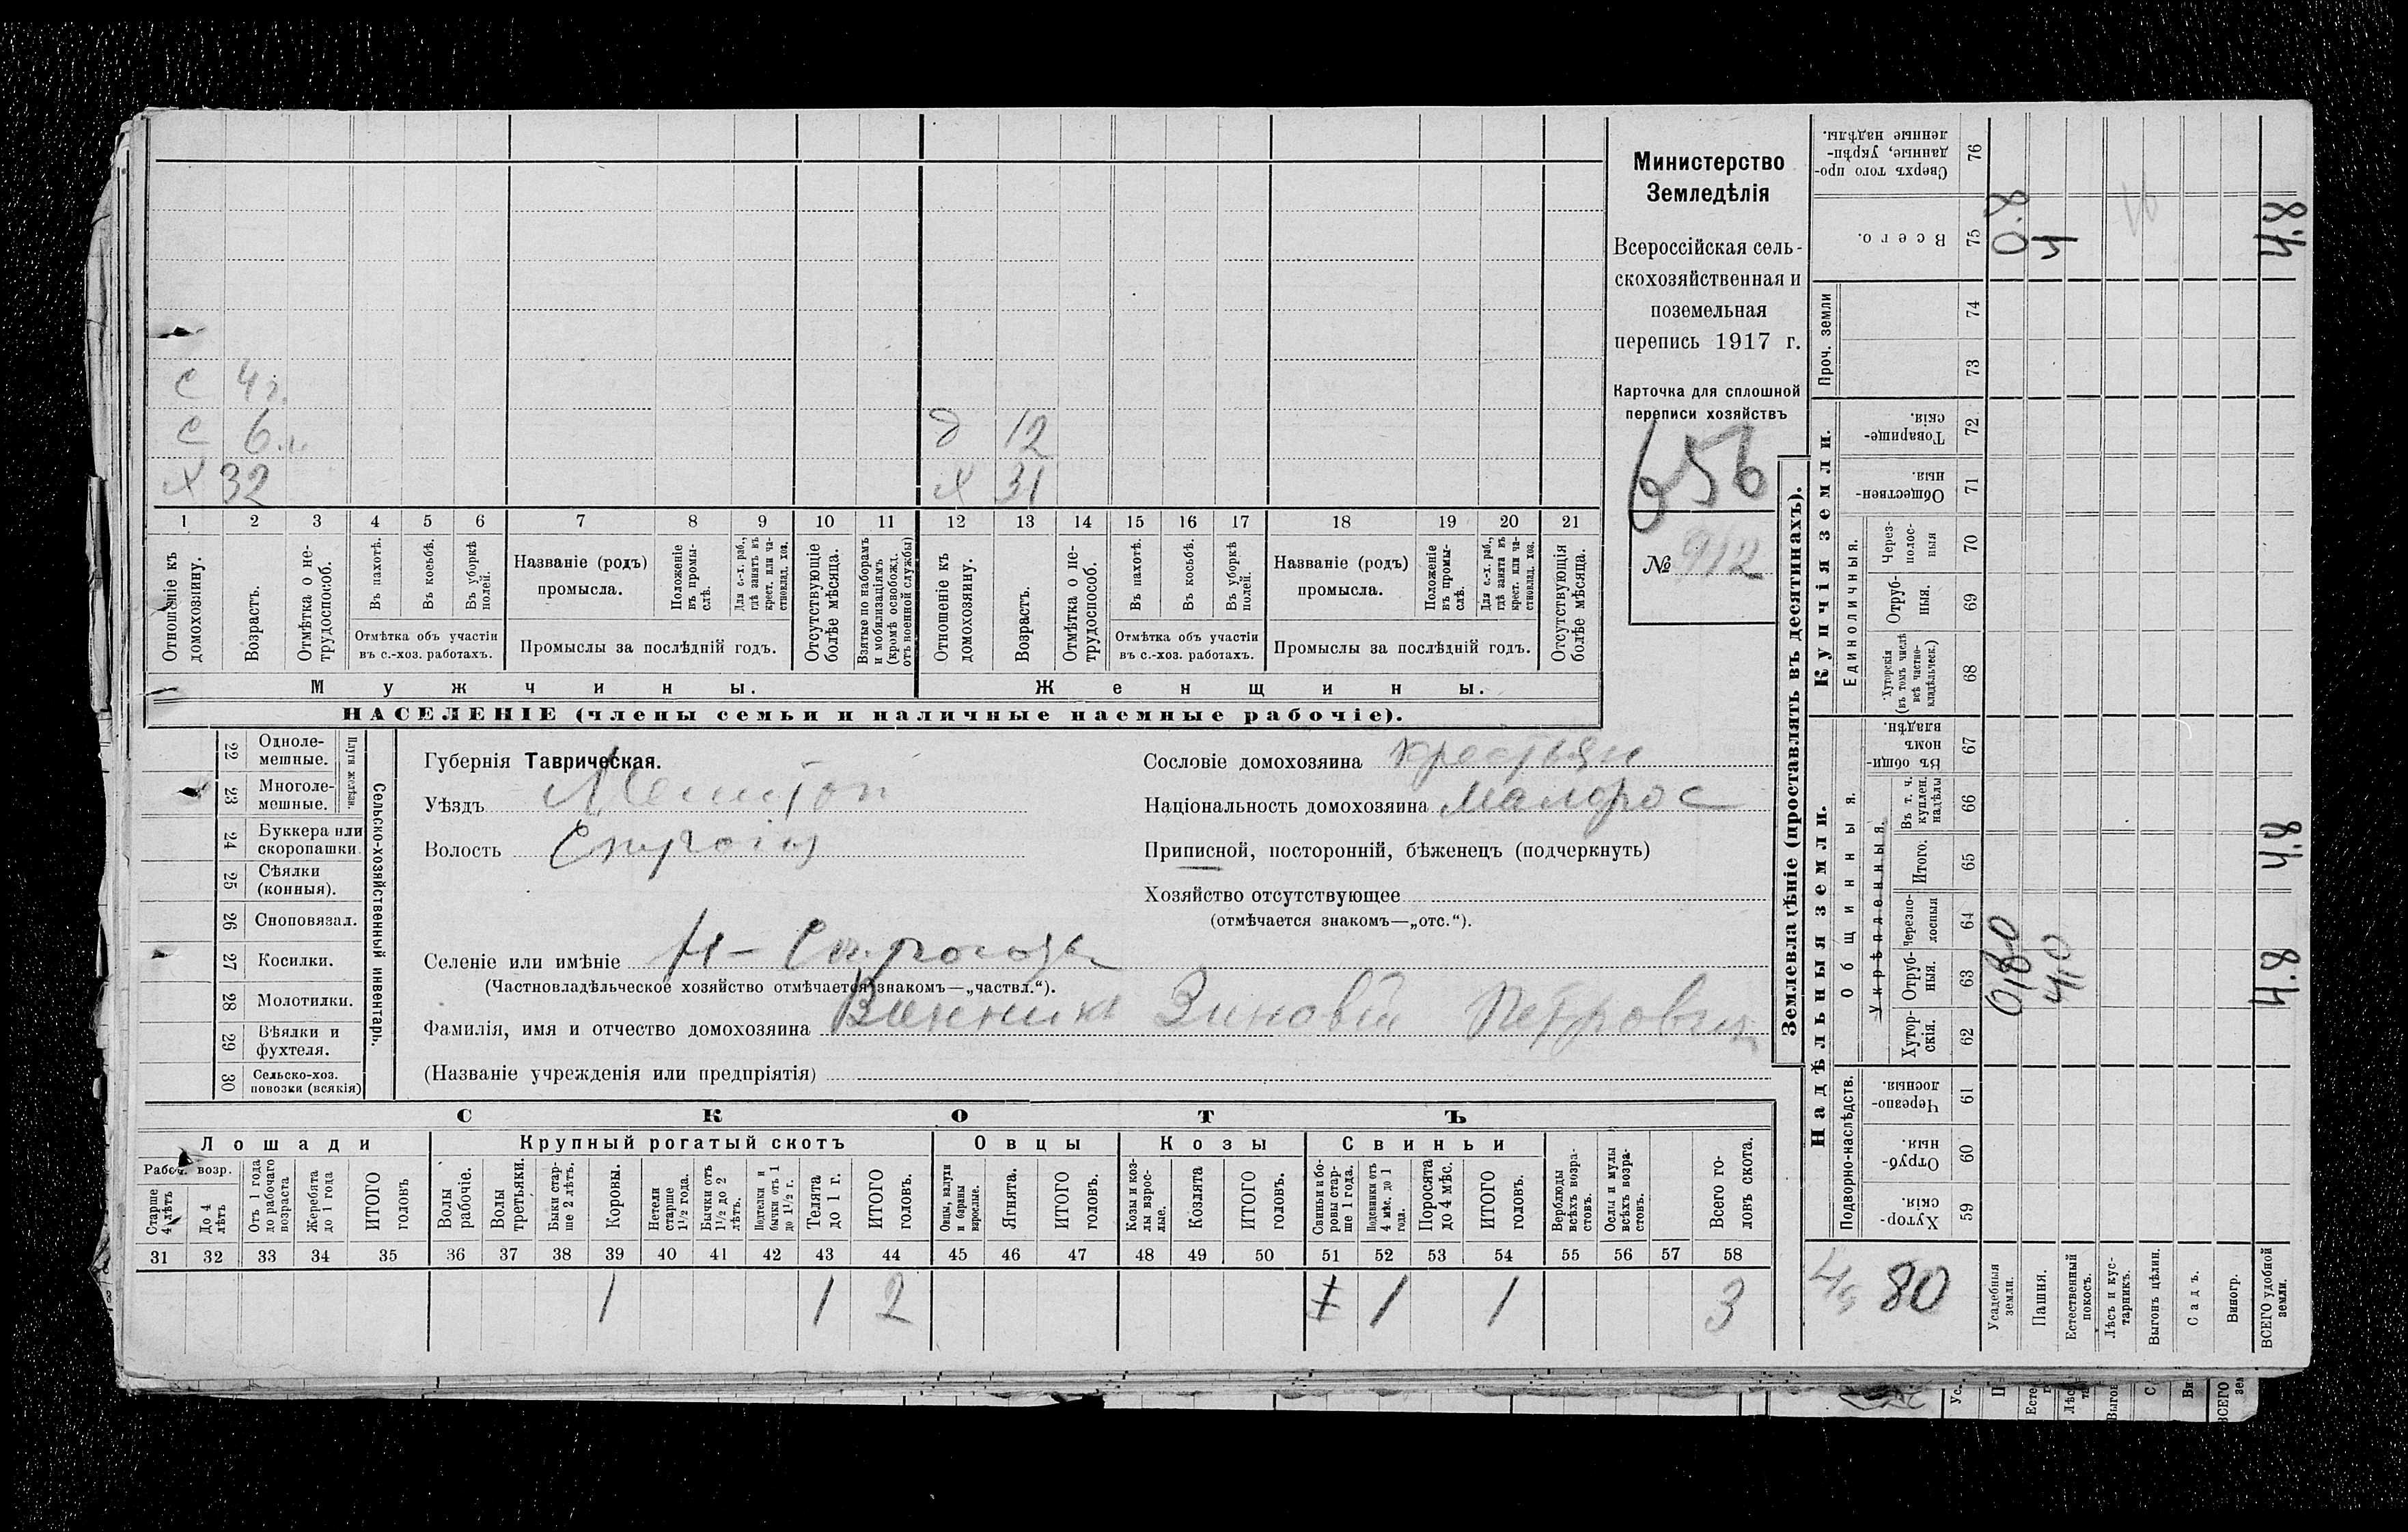 с 4 г.
с 6 м. д 12
х 32 х 31
1 2 3 4 5 6 7 8 9 10 11 12 13 14 15 16 17 18 19 20 21
Отношеніе къ домохозяину.
Возрастъ.
Отмѣтка о не-трудоспособ.
Въ пахотѣ.
Въ косьбѣ.
Въ уборкѣ полей.
Отмѣтка объ участіи
въ с.-хоз. работахъ.
Названіе (родъ)
промысла.
Положеніе въ промы-слѣ.
Для с.-х. раб., гдѣ занятъ въ крест. или ча-стновлад. хоз.
Промыслы за послѣдній годъ.
Отсутствующіе болѣе мѣсяца.
Взятые по наборамъ и мобилизаціямъ (кромѣ освобожд. отъ военной службы)
Отношеніе къ домохозяину.
Возрастъ.
Отмѣтка о не-трудоспособ.
Въ пахотѣ.
Въ косьбѣ.
Въ уборкѣ полей.
Отмѣтка объ участіи
въ с.-хоз. работахъ.
Названіе (родъ)
промысла.
Положеніе въ промы-слѣ.
Для с.-х. раб., гдѣ занята въ крест. или ча-стновлад. хоз.
Промыслы за послѣдній годъ.
Отсутствующія болѣе мѣсяца.
Мужчины. Женщины.
НАСЕЛЕНІЕ (члены семьи и наличные наемные рабочіе).
Министерство
Земледѣлія
Всероссійская сель-
скохозяйственная и
поземельная
перепись 1917 г.
Карточка для сплошной
переписи хозяйствъ
656
№ 912
22 Одноле-мешные.
23 Многоле-мешные.
Плуги желѣзн.
24 Буккера или скоропашки.
25 Сѣялки (конныя).
26 Сноповязал.
27 Косилки.
28 Молотилки.
29 Вѣялки и фухтеля.
30 Сельско-хоз. повозки (всякія)
Сельско-хозяйственный инвентарь.
Губернія Таврическая.
Уѣздъ Мелитоп
Волость
Селеніе или имѣніе Н-
(Частновладѣльческое хозяйство отмѣчается знакомъ—„частвл.“).
Фамилія, имя и отчество домохозяина Винник Зиновій Петрович
(Названіе учрежденія или предпріятія)
Сословіе домохозяина крестьян
Національность домохозяина малорос
Приписной, посторонній, бѣженецъ (подчеркнуть)
Хозяйство отсутствующее
(отмѣчается знакомъ—„отс.“).
СКОТЪ
Лошади Крупный рогатый скотъ Овцы Козы Свиньи
Рабоч. возр.
Старше 4 лѣтъ
До 4 лѣтъ
Отъ 1 года до рабочаго возраста
Жеребята до 1 года
ИТОГО головъ
Волы рабочіе.
Волы третьяки.
Быки стар-ше 2 лѣтъ.
Коровы.
Нетели старше 1½ года.
Бычки отъ 1½ до 2 лѣтъ.
Подтелки и бычки отъ 1 до 1½ г.
Телята до 1 г.
ИТОГО головъ.
Овцы, валухи и бараны взрослые.
Ягнята.
ИТОГО головъ.
Козы и коз-лы взрос-лые.
Козлята
ИТОГО головъ.
Свиньи и бо-ровы стар-ше 1 года.
Подсвинки отъ 4 мѣс. до 1 года.
Поросята до 4 мѣс.
ИТОГО головъ.
Верблюды всѣхъ возра-стовъ.
Ослы и мулы всѣхъ возра-стовъ.
Всего го-ловъ скота.
31 32 33 34 35 36 37 38 39 40 41 42 43 44 45 46 47 48 49 50 51 52 53 54 55 56 57 58
1 1 2 1 1 3
Землевладѣніе (проставлять въ десятинахъ).
Надѣльныя земли. Купчія земли. Проч. земли
Подворно-наслѣдств.
Общинныя.
Укрѣпленныя.
Единоличныя.
59 Хутор-скія
60 Отруб-ныя.
61 Черезпо-лосныя.
62 Хутор-скія.
63 Отруб-ныя.
64 Черезпо-лосныя
65 Итого.
66 Въ т. ч. куплен. надѣлы
67 Въ общин-номъ владѣн.
68 Хуторскія (въ томъ числѣ всѣ частно-владѣльческ.)
69 Отруб-ныя.
70 Через-полос-ныя
71 Обществен-ныя.
72 Товарище-скія.
73
74
75 Всего.
76 Сверхъ того про-данные, укрѣп-ленные надѣлы.
Усадебныя земли.
Пашня.
Естественный покосъ.
Лѣсъ и кус-тарникъ.
Выгонъ цѣлин.
Садъ.
Виногр.
ВСЕГО удобной земли.
80
0.8
4
4.8
4.8
4,0
4.8